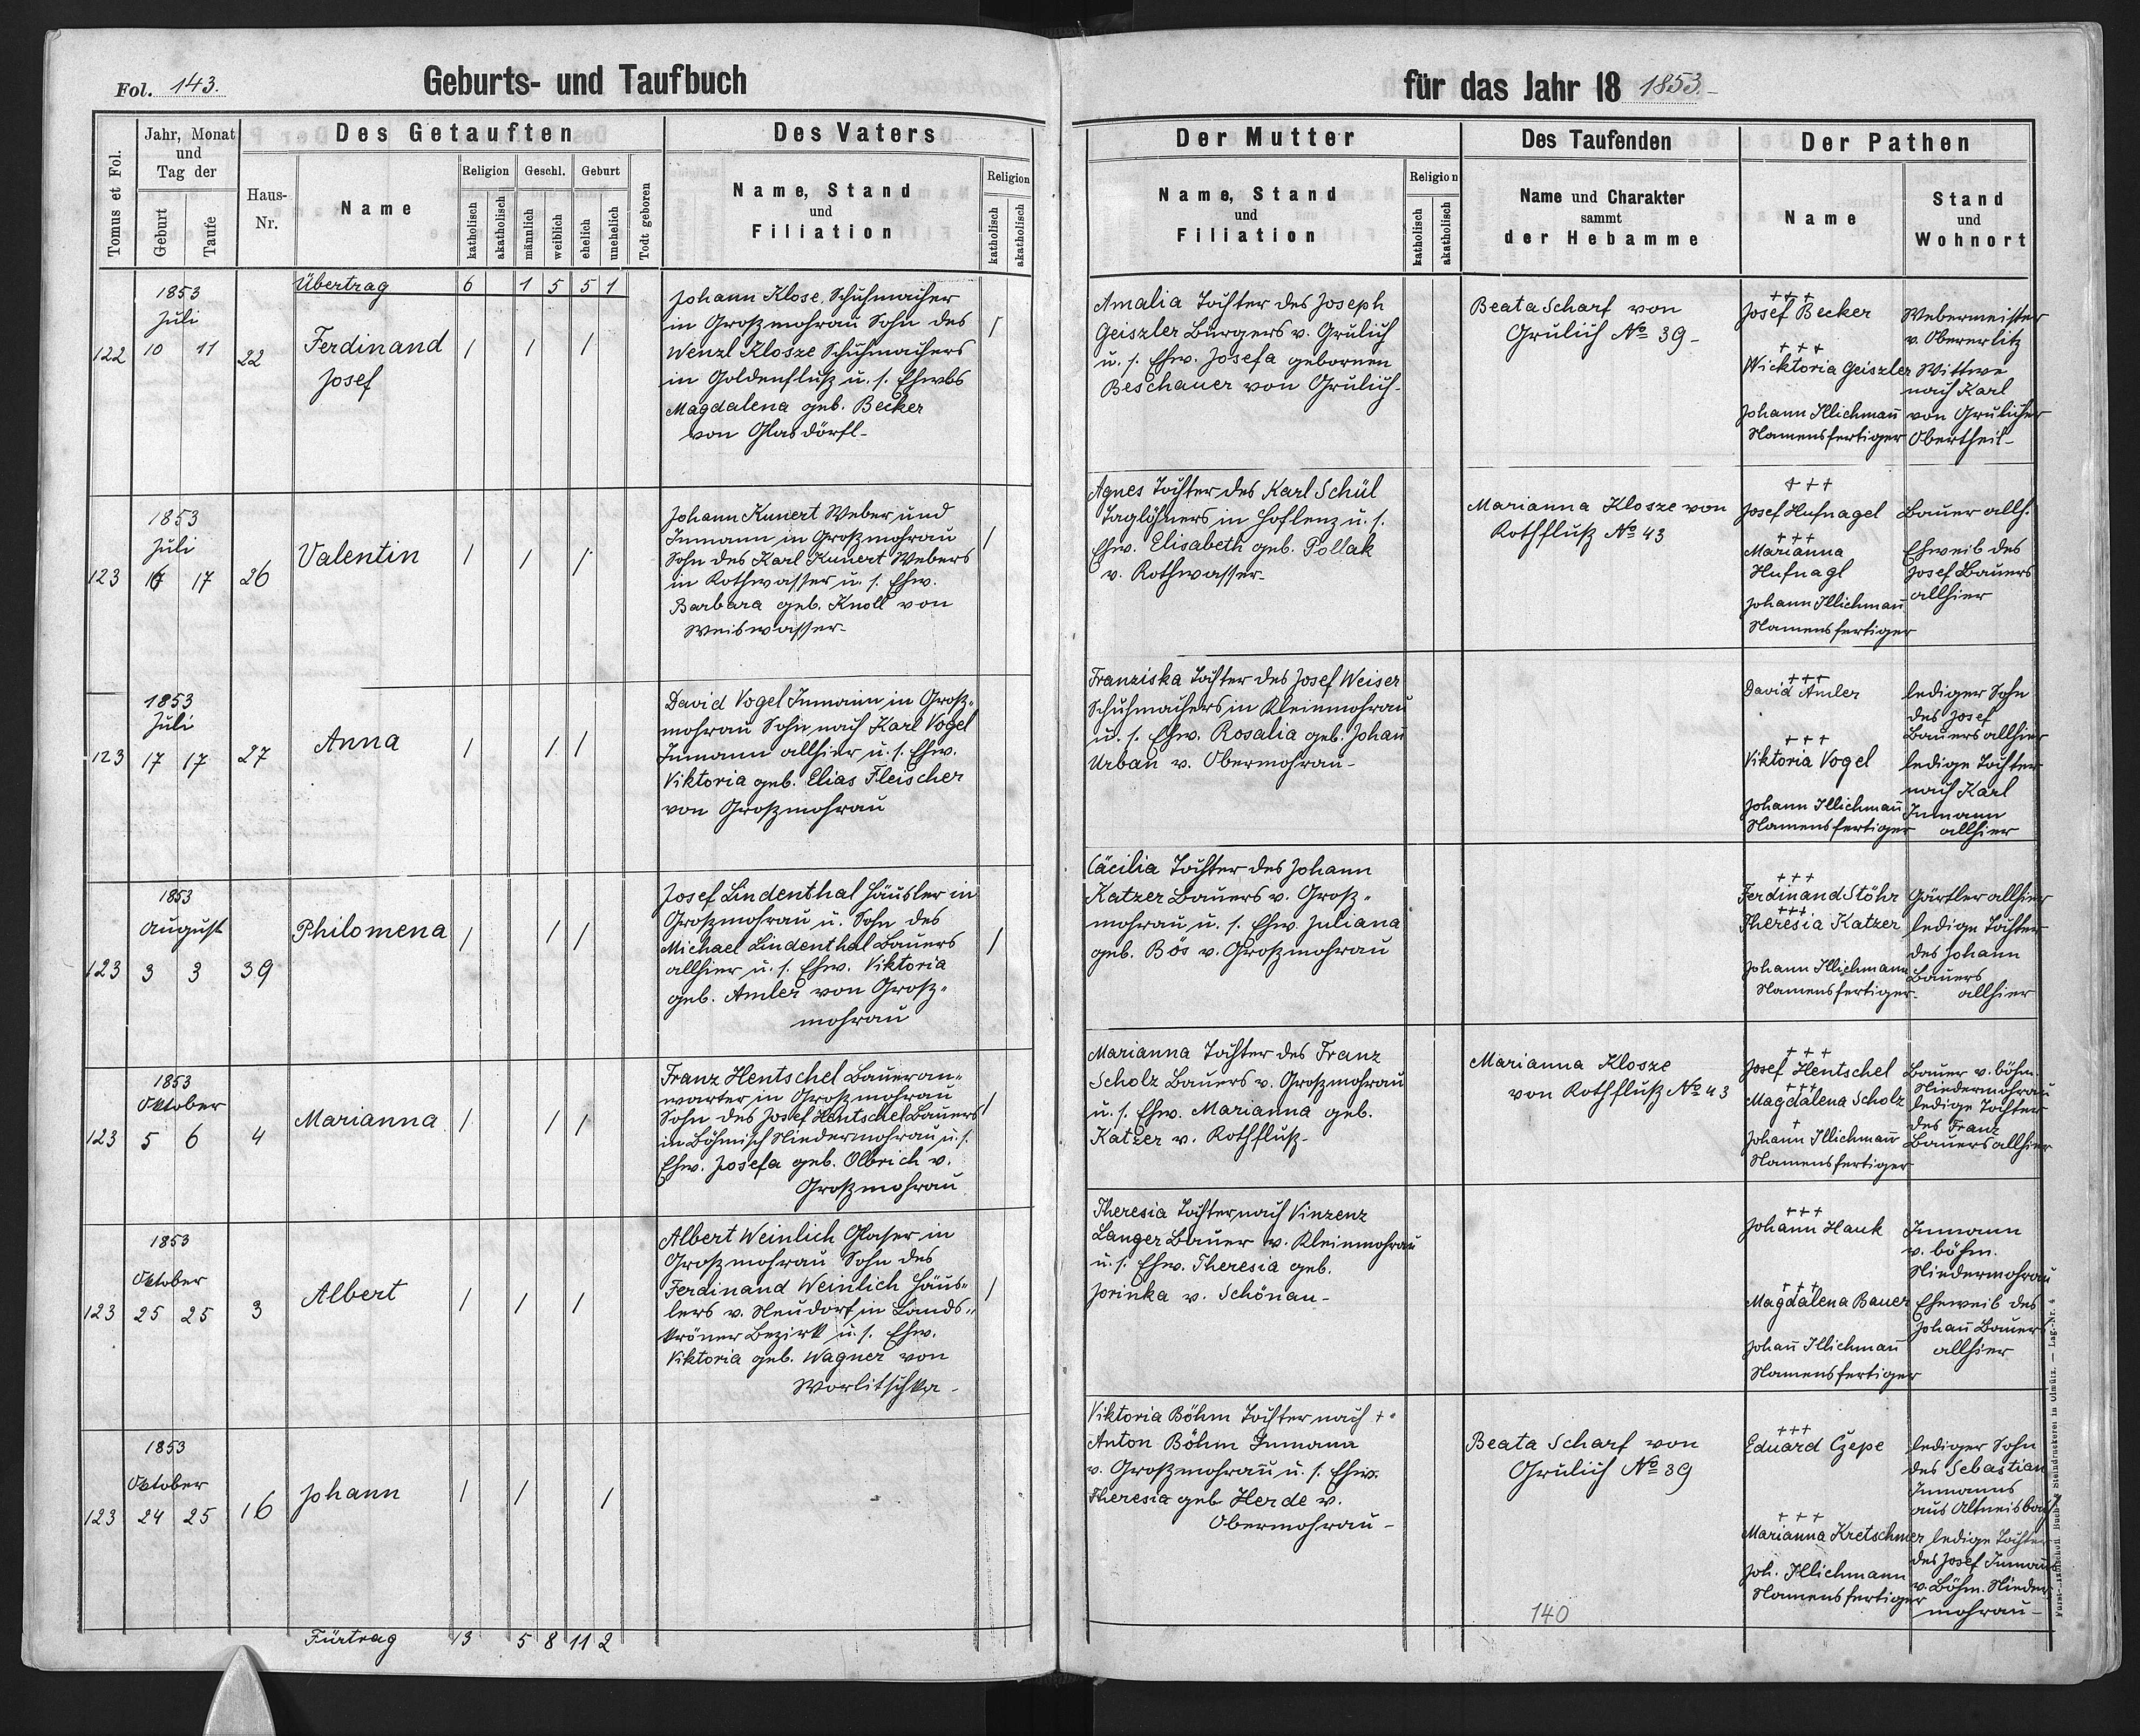 Fol. 143.
Geburts- und Taufbuch
Tomus et Fol.
Jahr, Monat
und
Tag der
Geburt
Taufe
Haus-
Nr.
Des Getauften
Name
Religion
katholisch
akatholisch
Geschl.
männlich
weiblich
Geburt
ehelich
unehelich
Todt geboren
Des Vaters
Name, Stand
und
Filiation
Religion
katholisch
akatholisch
Übertrag 6 1 5 5 1
1853
Juli
122 10 11 22
Ferdinand
Josef
1 1 1
Johann Klose, Schuhmacher
in Groszmohrau Sohn des
Wenzl Klosze Schuhmachers
in Goldenflusz u. s. Ehwbs
Magdalena geb. Becker
von Glasdörfl-
1
1853
Juli
123 16 17 26
Valentin
1 1 1
Johann Kunert Weber und
Inmann in Groszmohrau
Sohn des Karl Kunert Webers
in Rothwasser u. s. Ehw.
Barbara geb. Knoll von
Weiswasser-
1
1853
Juli
123 17 17 27
Anna
1 1 1
David Vogel Inmann in Grosz-
mohrau Sohn nach Karl Vogel
Inmann allhier u. s. Ehw.
Viktoria geb. Elias Fleischer
von Groszmohrau
1853
August
123 3 3 39
Philomena
1 1 1
Josef Lindenthal Häusler in
Groszmohrau u. Sohn des
Michael Lindenthal Bauers
allhier u. s. Ehw. Viktoria
geb. Amler von Grosz-
mohrau
1
1853
Oktober
123 5 6 4
Marianna
1 1 1
Franz Hentschel Baueran-
warter in Groszmohrau
Sohn des Josef Hentschel Bauers
in Böhmisch Niedermohrau u. s.
Ehw. Josefa geb. Olbrich v.
Groszmohrau
1
1853
Oktober
123 25 25 3
Albert
1 1 1
Albert Weinlich Glaser in
Groszmohrau Sohn des
Ferdinand Weinlich Häus-
lers v. Neudorf in Lands-
kröner Bezirk u. s. Ehw.
Viktoria geb. Wagner von
Worlitschka-
1
1853
Oktober
123 24 25 16
Johann
1 1 1
Fürtrag 13 5 8 11 2
für das Jahr 18 1853.-
Der Mutter
Name, Stand
und
Filiation
Religion
katholisch
akatholisch
Des Taufenden
Name und Charakter
sammt
der Hebamme
Der Pathen
Name
Stand
und
Wohnort
Amalia Tochter des Joseph
Geiszler Bürgers v. Grulich
u. s. Ehw. Josefa gebornen
Beschauer von Grulich-
Beata Scharf von
Grulich No 39-
+++
Josef Becker
+++
Wicktoria Geiszler
Johann Illichmann
Namensfertiger
Webermeister
v. Obererlitz
Wittwe
nach Karl
von Grulicher
Obertheil-
Agnes Tochter des Karl Schül
Taglöhners in Hoflenz u. s.
Ehw. Elisabeth geb. Pollak
v. Rothwasser-
Marianna Klosze von
Rothflusz No 43
+++
Josef Hufnagel
+++
Marianna
Hufnagl
Johann Illichmann
Namensfertiger
Bauer allh.
Ehweib des
Josef Bauers
allhier
Franziska Tochter des Josef Weiser
Schuhmachers in Kleinmohrau
u. s. Ehw. Rosalia geb. Johan
Urban v. Obermohrau-
+++
David Amler
+++
Viktoria Vogel
Johann Illichmann
Namensfertiger
lediger Sohn
des Josef
Bauers allhier
ledige Tochter
nach Karl
Inmann
allhier
Cäcilia Tochter des Johann
Katzer Bauers v. Grosz-
mohrau u. s. Ehw. Juliana
geb. Bös v. Groszmohrau
+++
Ferdinand Stöhr
+++
Theresia Katzer
Johann Illichmann
Namensfertiger.
Gärtler allhier
ledige Tochter
des Johann
Bauers
allhier
Marianna Tochter des Franz
Scholz Bauers v. Groszmohrau
u. s. Ehw. Marianna geb.
Katzer v. Rothflusz-
Marianna Klosze
von Rothflusz No 43
+++
Josef Hentschel
+++
Magdalena Scholz
+
Johann Illichmann
Namensfertiger
Bauer v. böhm.
Niedermohrau
ledige Tochter
des Franz
Bauers allhier
Theresia Tochter nach Vinzenz
Langer Bauer v. Kleinmohrau
u. s. Ehw. Theresia geb.
Jorinka v. Schönau-
+++
Johann Hauk
+++
Magdalena Bauer
Johan Illichmann
Namensfertiger
Inmann
v. böhm.
Niedermohrau
Eheweib des
Johan Bauers
allhier
Viktoria Böhm Tochter nach +
Anton Böhm Inmann
v. Groszmohrau u. s. Ehw.
Theresia geb Herde v.
Obermohrau-
Beata Scharf von
Grulich No 39
140
+++
Eduard Czepe
+++
Marianna Kretschmer
Joh. Illichmann
Namensfertiger
lediger Sohn
des Sebastian
Inmanns
aus Altneisbach
ledige Tochter
des Josef Inmanns
v. Böhm. Nieder
mohrau-
Steindruckerei in Olmütz. — Lag.-Nr. 6